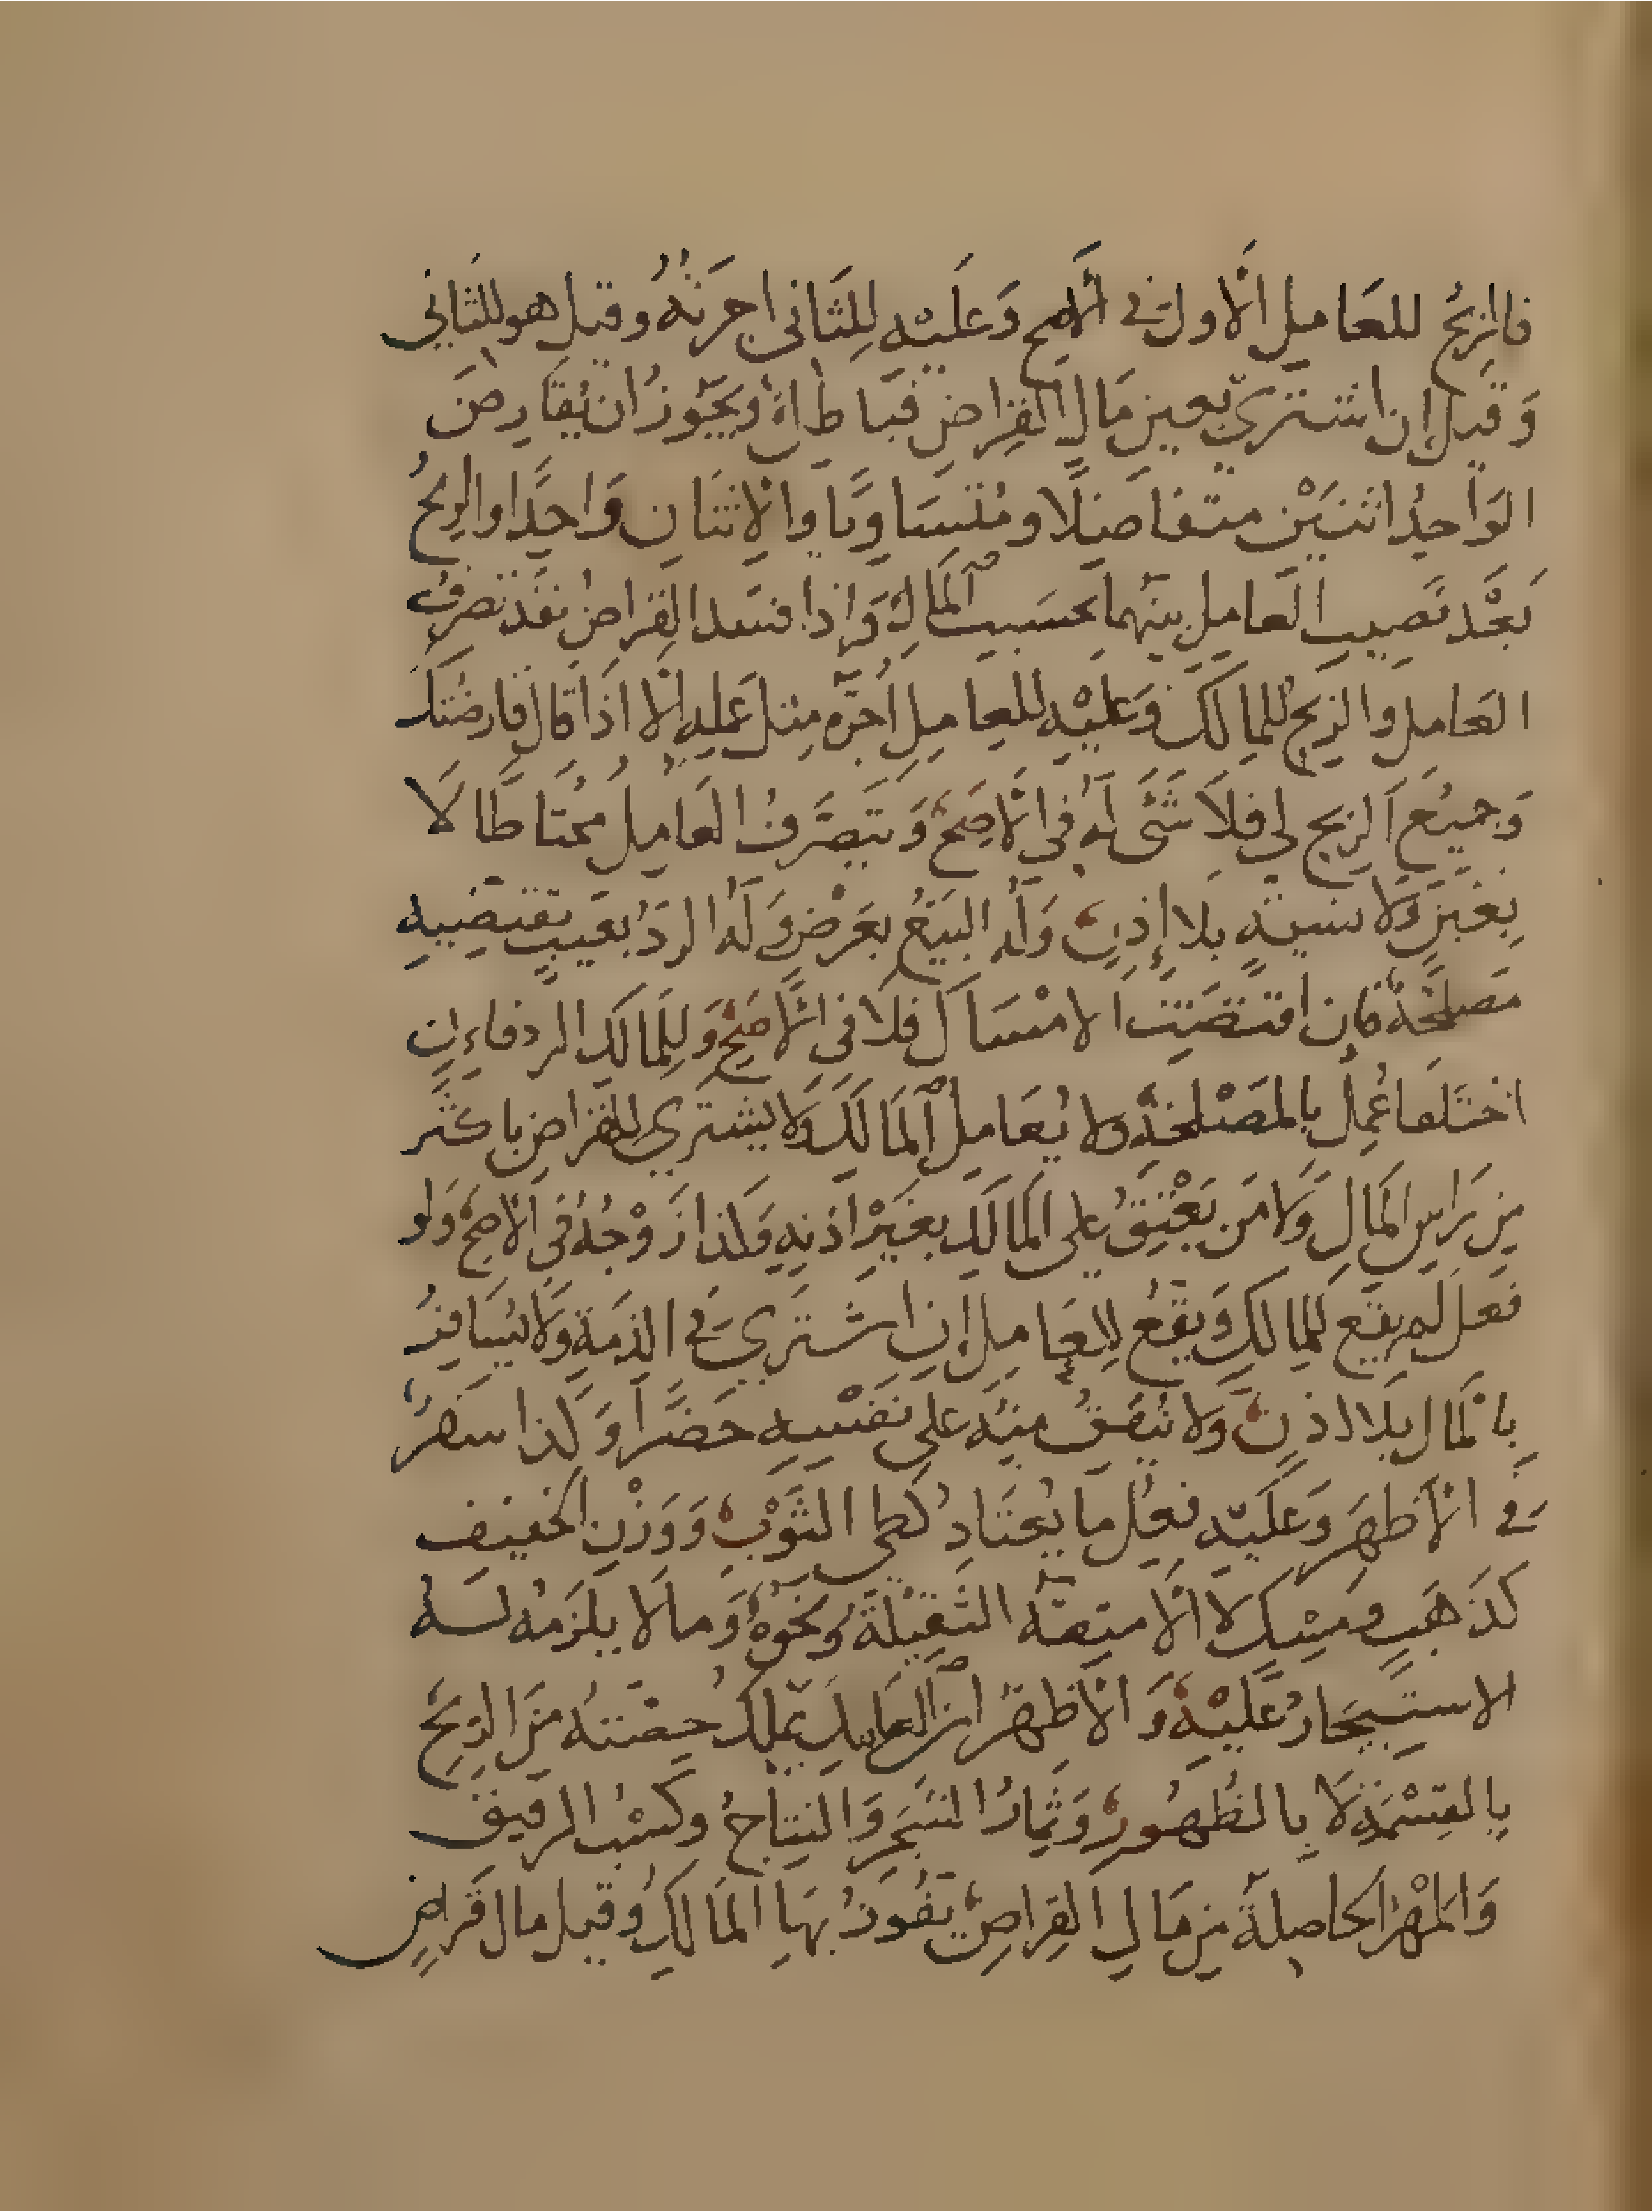 فالربح للعامل الأول في الأصح وعليه للثاني اجرته وقيل هو للثاني
وقيل إن اشترى بعين مال القراض فباطل ويجوز ان يقارض
الواحد اثنين متفاضلا ومتساويا والاثنان واحدا والربح
بعد نصيب العامل بينهما بحسب المال واذا فسد القراض نفذ تصرف
العامل والربح للمالك وعليه للعامل أجرة مثل عمله إلا اذا قال قارضتك
وجميع الربح لي فلا شئ له في الأصح ويتصرف العامل محتاطا لا
بغبن ولا نسيئة بلا إذن وله البيع بعرض وله الرد بعيب تقتضيه
مصلحة فان اقتضت الامساك فلا في الأصح وللمالك الرد فاءن
اختلفا عمل بالمصلحة ولا يعامل المالك ولا يشتري للقراض باكثر
من راس المال ولا من يعتق على المالك بغير اذنه وكذا زوجه في الأصح ولو
فعل لم يقع للمالك ويقع للعامل إن اشترى في الذمة ولا يسافر
بالمال بلا اذن ولا ينفق منه على نفسه حضرا وكذا سفرا
في الأظهر وعليه فعل ما يعتاد كطي الثوب ووزن الخفيف
كذهب ومسك لا الأمتعة الثقيلة ونحوه وما لا يلزمه له
الاستيجار عليه والأظهر ان العامل يملك حصته من الربح
بالقسمة لا بالظهور وثمار الشجر والنتاج وكسب الرقيق
والمهر الحاصلة من مال القراض يفوز بها المالك وقيل مال قراض